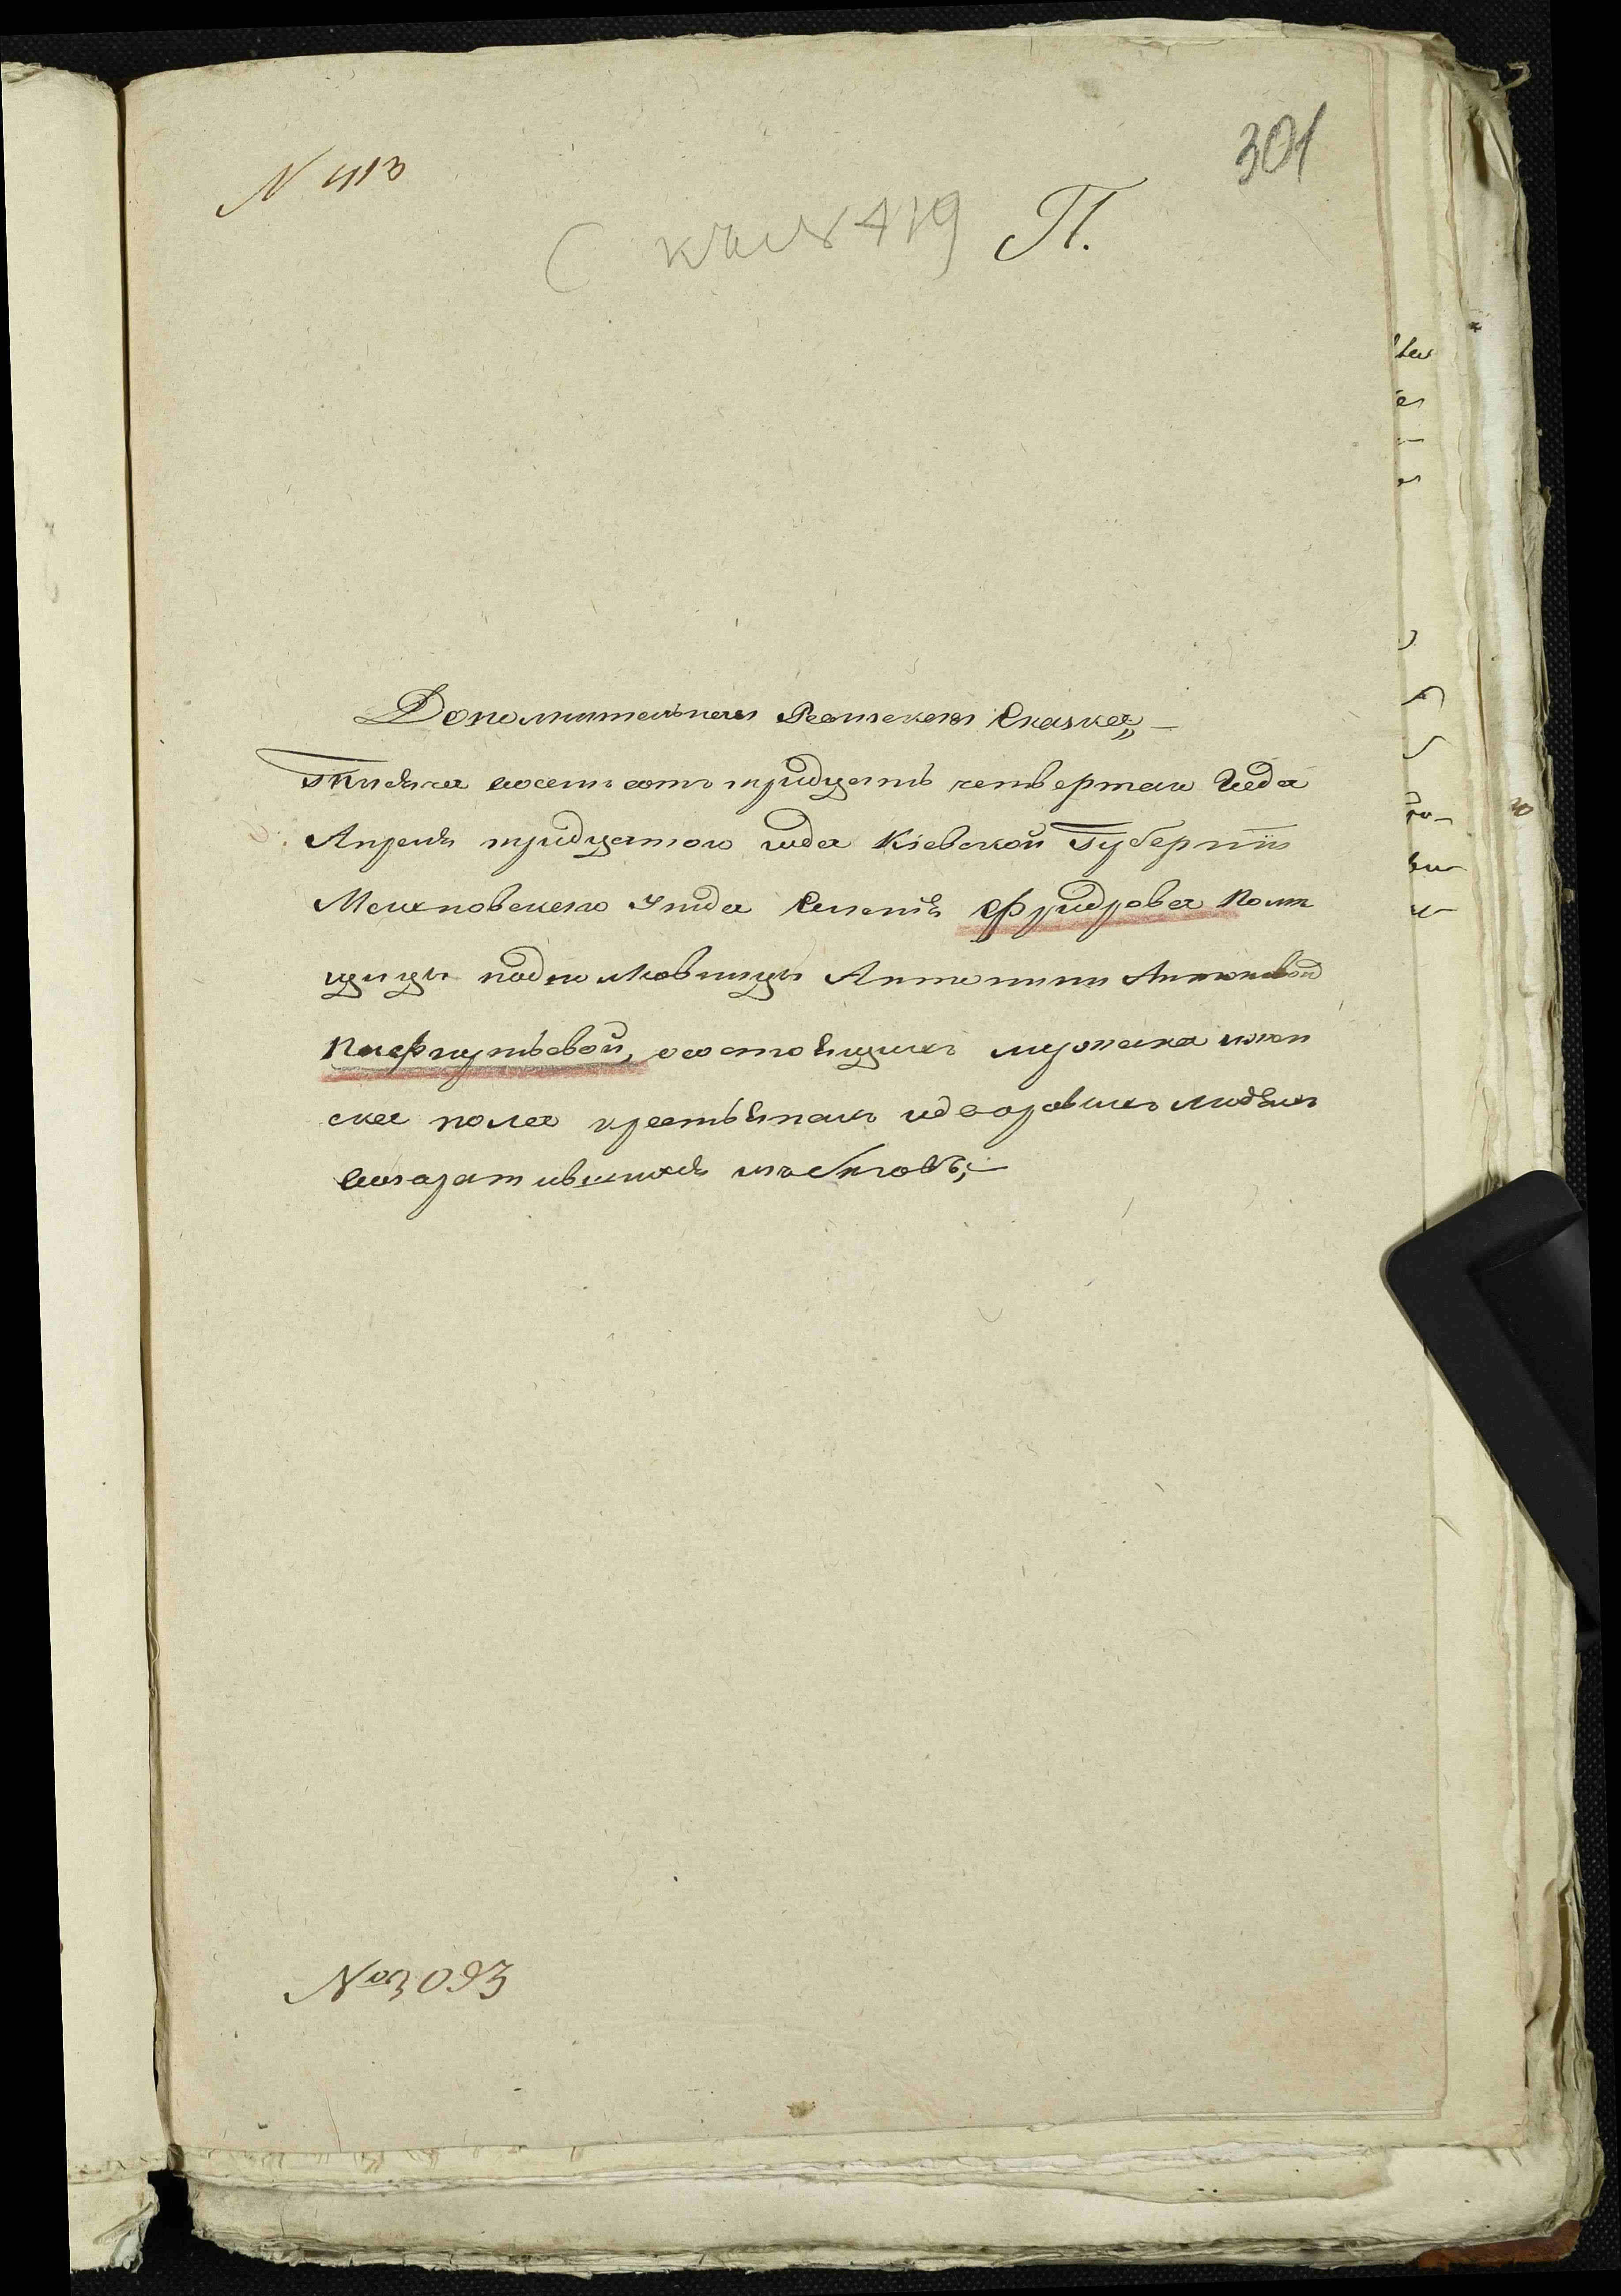 301
N 413
( къ № 419 П.
Дополнительная Ревизская Сказка„—
Тысяча восемсотъ тридцать четвертаго Года
Апреля тридцатого года Кіевской Губерніи
Махновского Уезда Селенія Фридрова Поме
щицы подполковницы Антонины Антоновой
состоящихъ мужеска ижен
ска пола крестьянахъ идворовыхъ людяхъ
возвратившихся изъ беговъ;—
№ 3093